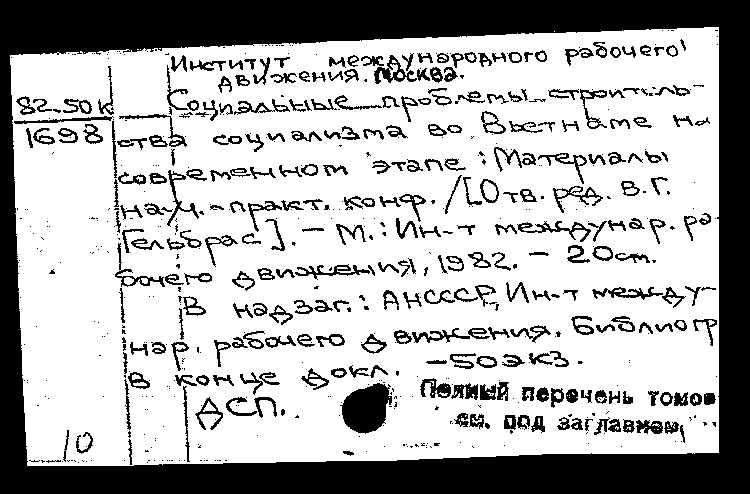 Институт международного рабочего
движения. Москва.
82-50к
1698
Социальные проблемы строитель-
ства социализма во Вьетнаме на
современном этапе : Материалы
науч.-практ. конф. / [Отв. ред. В.Г.
Гельбрас]. – М. : Ин-т междунар. ра-
бочего движения, 1982. – 20см.
В надзаг.: АНСССР, Ин-т между-
нар. рабочего движения. Библиогр
в конце докл. – 50экз.
ДСП.
Полный перечень томов
см. под заглавием
10